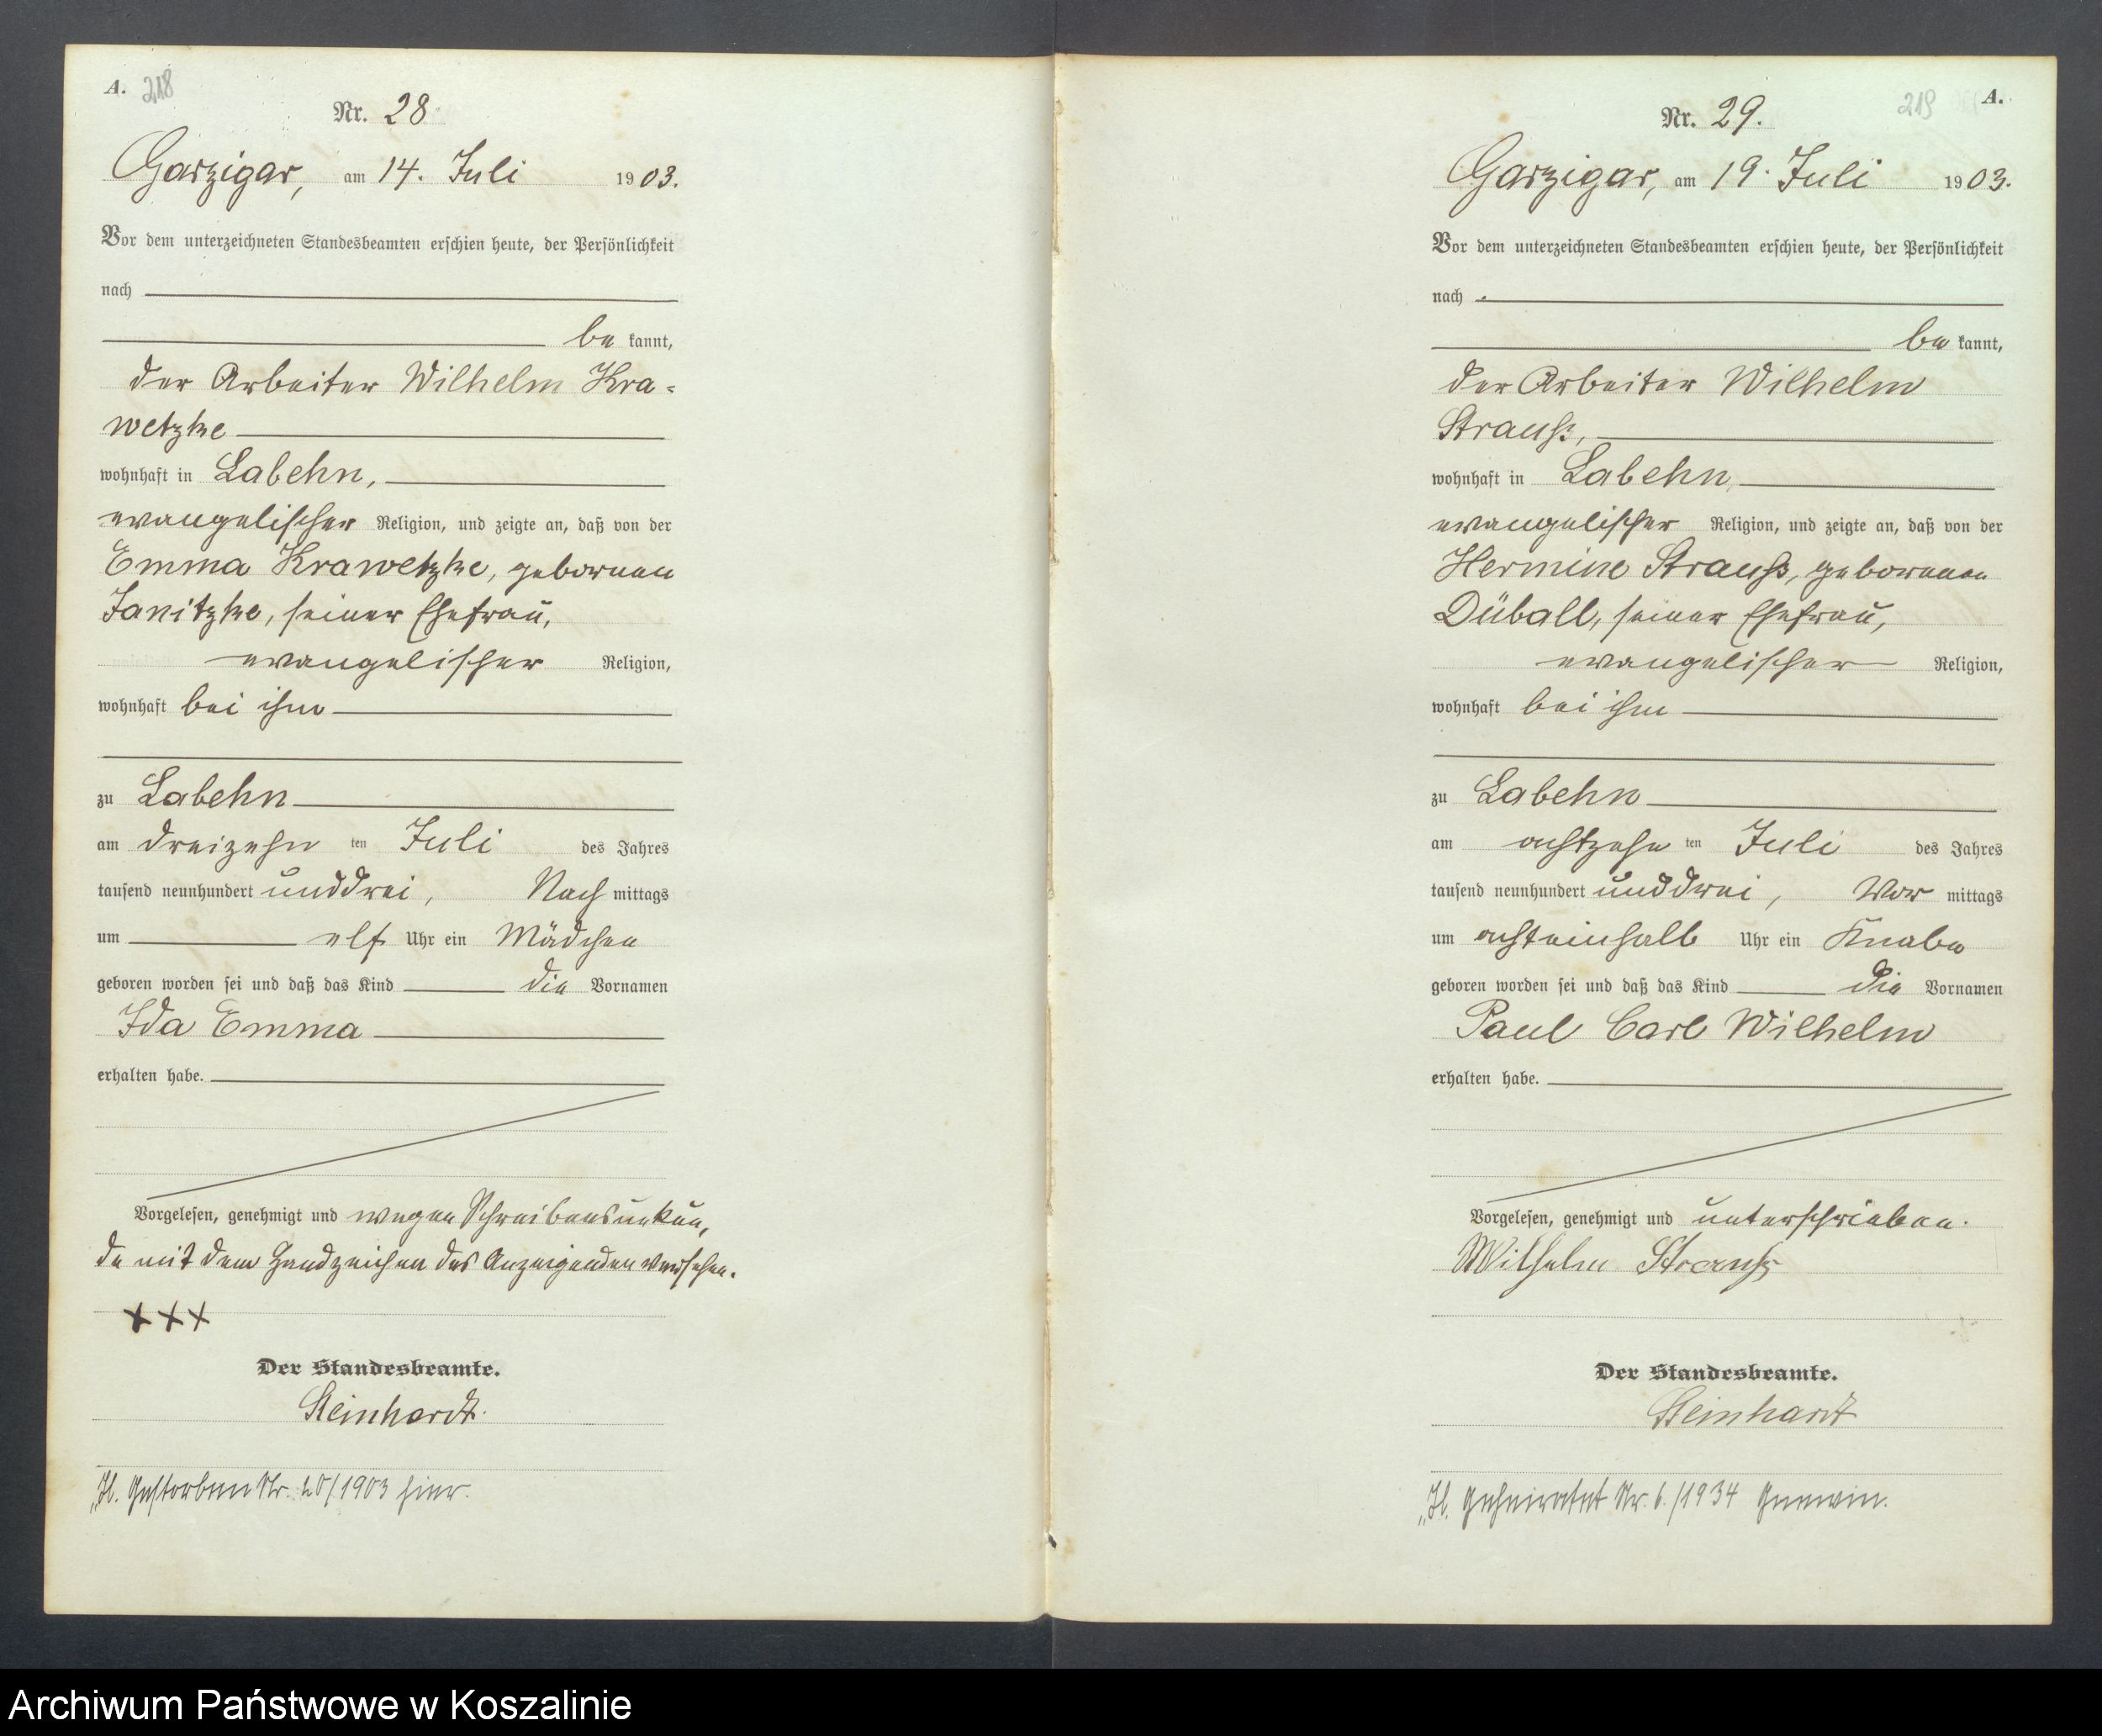 A. 218
Nr. 28
Garzigar, am 14. Juli 1903.
Vor dem unterzeichneten Standesbeamten erschien heute, der Persönlichkeit
nach
be kannt,
der Arbeiter Wilhelm Kra-
wetzke
wohnhaft in Labehn,
evangelischer Religion, und zeigte an, daß von der
Emma Krawetzke, geborenen
Janitzke, seiner Ehefrau,
evangelischer Religion,
wohnhaft bei ihm
zu Labehn
am dreizehn ten Juli des Jahres
tausend neunhundert unddrei, Nach mittags
um elf Uhr ein Mädchen
geboren worden sei und daß das Kind die Vornamen
Ida Emma
erhalten habe.
Vorgelesen, genehmigt und wegen Schreibensunkun-
de mit dem Handzeichen des Anzeigenden versehen.
+++
Der Standesbeamte.
Steinhardt.
Gestorben Nr. 20/1903 hier.
219 A.
Nr. 29.
Garzigar, am 19. Juli 1903.
Vor dem unterzeichneten Standesbeamten erschien heute, der Persönlichkeit
nach
be kannt,
der Arbeiter Wilhelm
Strauß,
wohnhaft in Labehn,
evangelischer Religion, und zeigte an, daß von der
Hermine Strauß, geborenen
Düball, seiner Ehefrau,
evangelischer Religion,
wohnhaft bei ihm
zu Labehn
am achtzehn ten Juli des Jahres
tausend neunhundert unddrei, Vor mittags
um achteinhalb Uhr ein Knabe
geboren worden sei und daß das Kind die Vornamen
Paul Carl Wilhelm
erhalten habe.
Vorgelesen, genehmigt und unterschrieben.
Wilhelm Strauß
Der Standesbeamte.
Steinhardt
Geheiratet Nr. 6./1934 Gnewin.
Archiwum Państwowe w Koszalinie